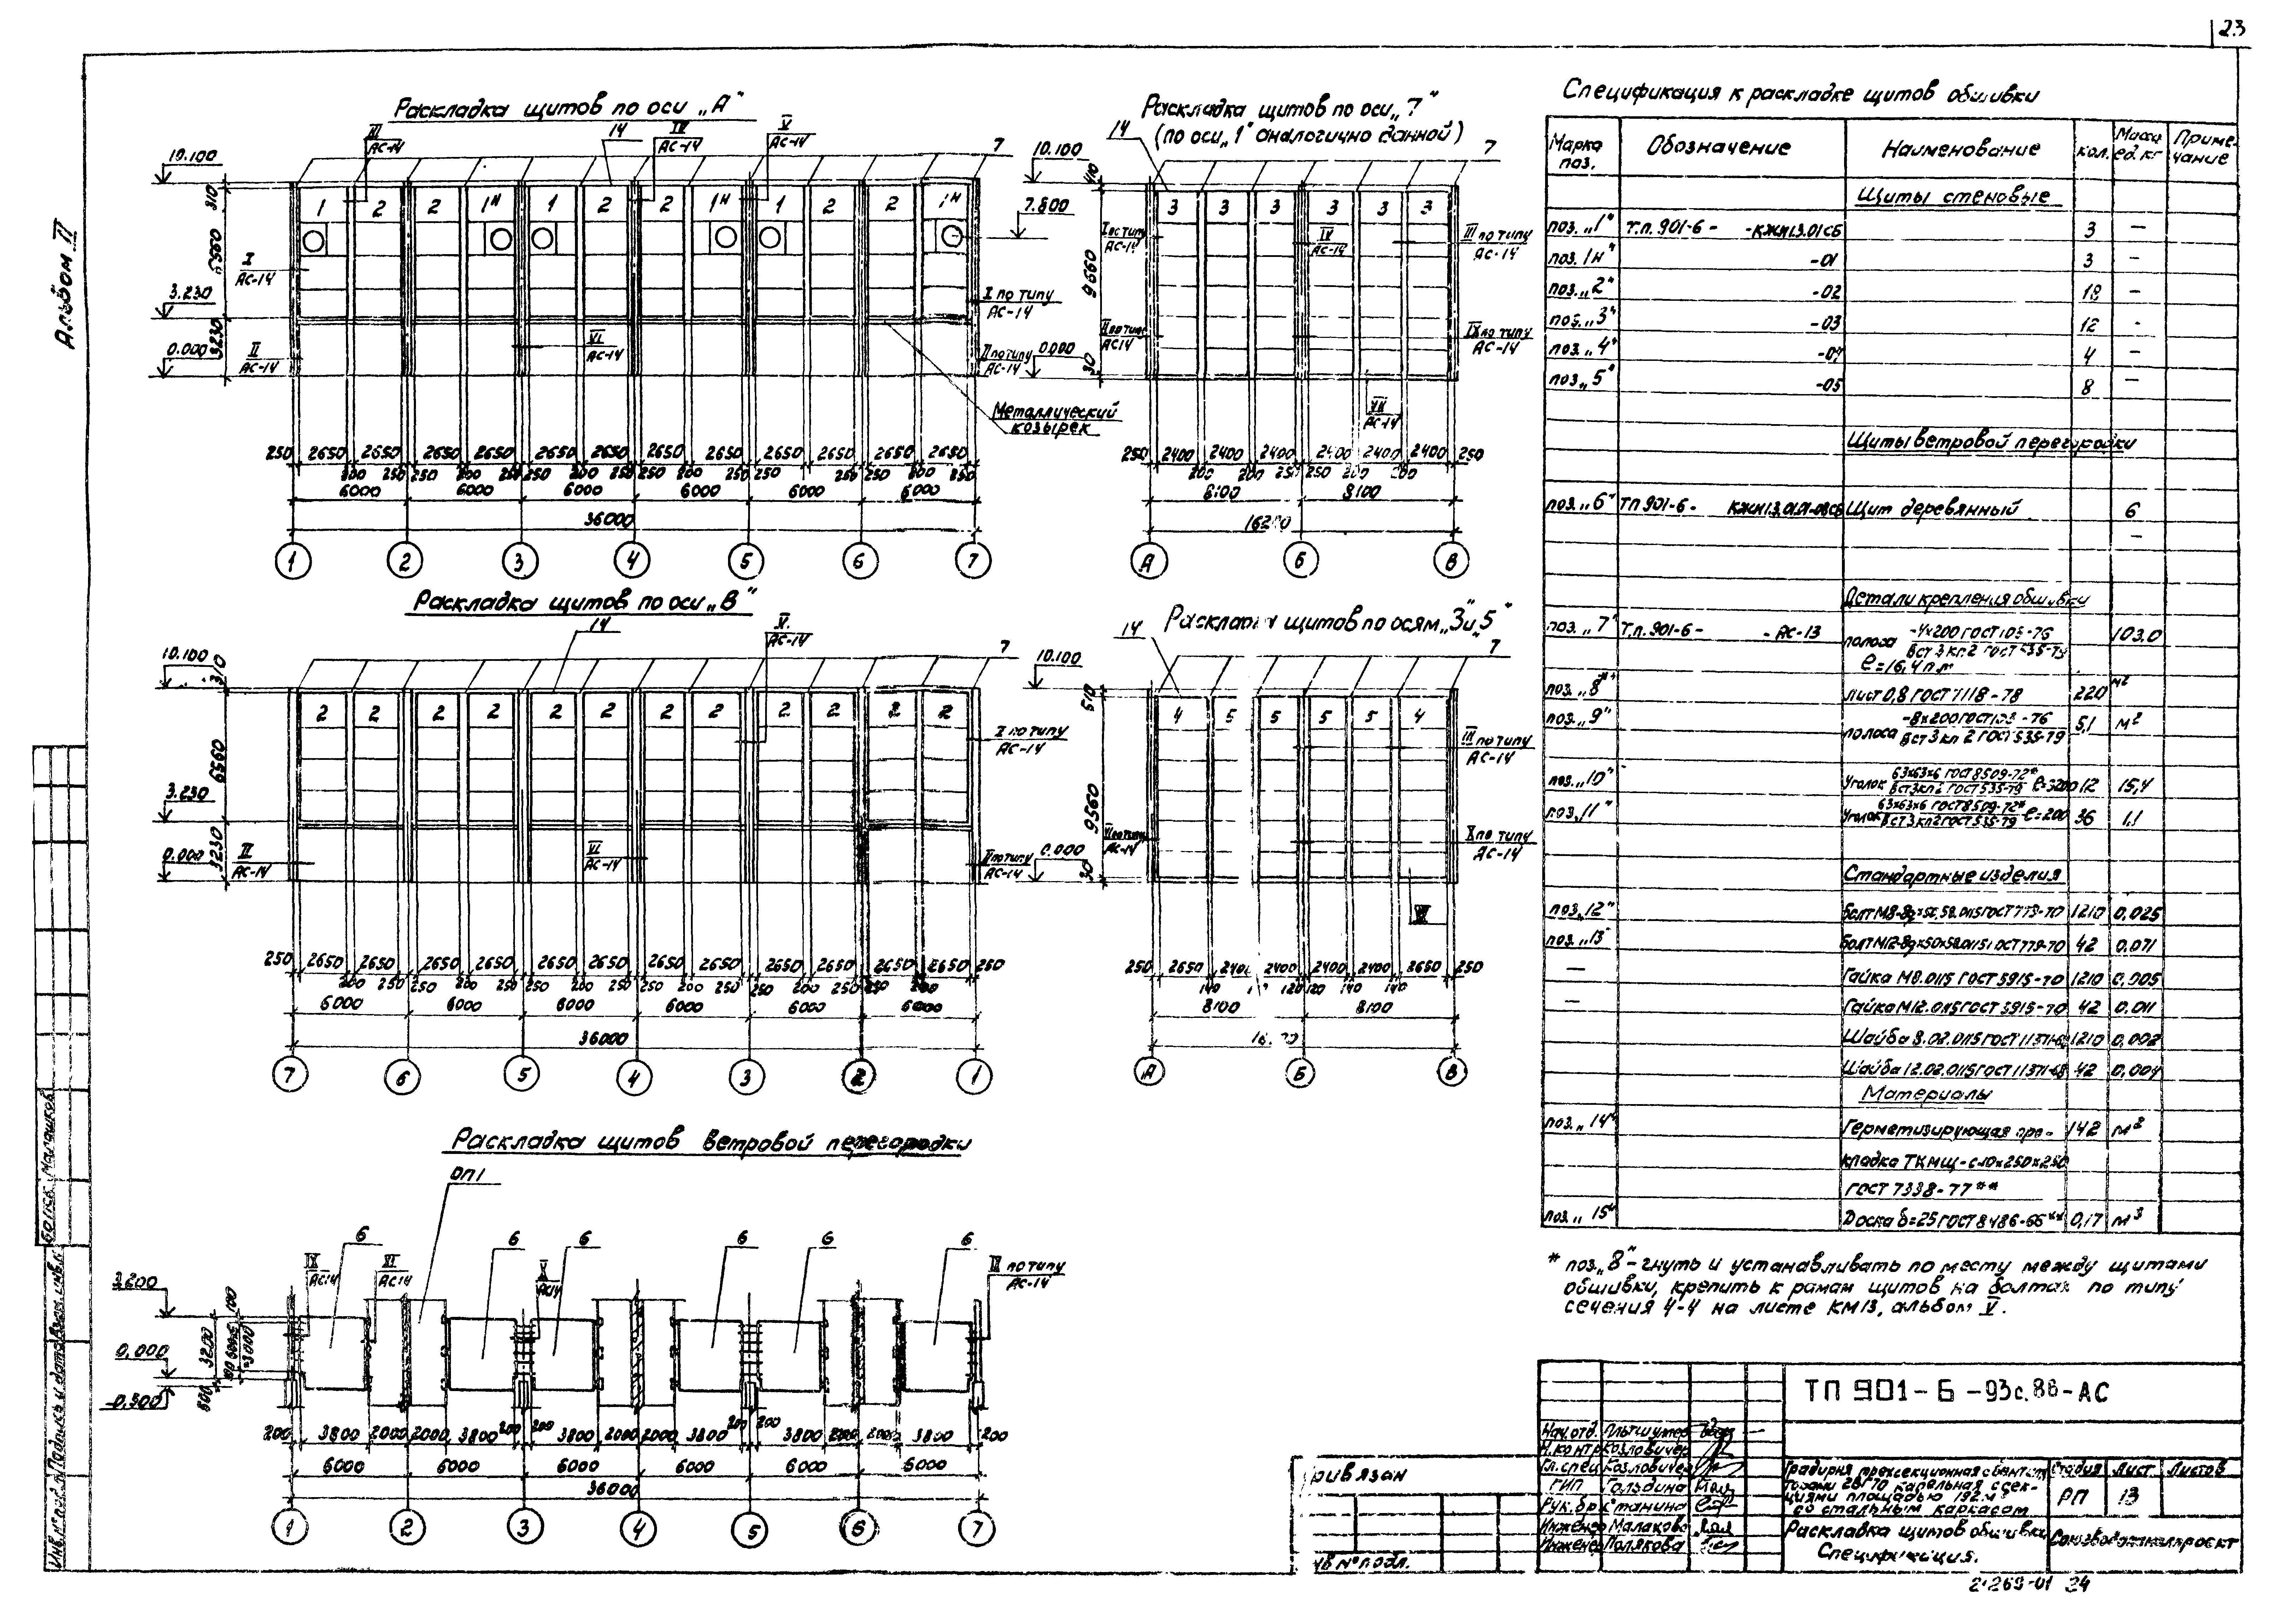 23
Альбом II
Раскладка щитов по оси „А"
III
АС-14
14
IV
АС-14
V
АС-14
7
10.100
310
6560
3.230
3230
0.000
1 2 2 1н 1 2 2 1н 1 2 2 1н
I
АС-14
II
АС-14
VI
АС-14
I по типу
АС-14
II по типу
АС-14
Металлический
козырек
250 2650 2650 2650 2650 2650 2650 2650 2650 2650 2650 2650 2650
200 250 250 200 250 250 200 250 250 200 250 250 200 250 250 200 250
6000 6000 6000 6000 6000 6000
36000
1 2 3 4 5 6 7
Раскладка щитов по оси „7"
(по оси „1" аналогично данной)
14
7
10.100
7.800
3 3 3 3 3 3
I по типу
АС-14
IV
АС-14
III по типу
АС-14
9660
II по типу
АС14
IX по типу
АС-14
0.000
30
VII
АС-14
250 2400 2400 2400 2400 2400 2400 250
200 200 250 250 200 200
8100 8100
16200
А Б В
Раскладка щитов по оси „В"
14
V
АС-14
7
10.100
310
6560
3.230
3230
0.000
2 2 2 2 2 2 2 2 2 2 2 2
I по типу
АС-14
II
АС-14
VI
АС-14
II по типу
АС-14
250 2650 2650 2650 2650 2650 2650 2650 2650 2650 2650 2650 2650 250
200 250 250 200 250 250 200 250 250 200 250 250 200 250 250 200
6000 6000 6000 6000 6000 6000
36000
7 6 5 4 3 2 1
Раскладка щитов по осям „3"и„5"
14
7
10.100
510
4 5 5 5 5 4
III по типу
АС-14
9560
АС-14
X по типу
АС-14
0.000
30
250 2650 2400 2400 2400 2400 2650 250
140 120 120 140 140
8100 8100
А Б В
Раскладка щитов ветровой перегородки
ОП1
6 6 6 6 6 6
IX
АС14
XI
АС14
X
АС14
IX по типу
АС-14
3.200
100
3200
=3000
0.000
800
-0.800
200 3800 2000 2000 3800 200 200 3800 2000 2000 3800 200 200 3800 2000 2000 3800 200
6000 6000 6000 6000 6000 6000
36000
1 2 3 4 5 6 7
Спецификация к раскладке щитов обшивки
Марка поз. Обозначение Наименование кол. Масса ед. кг Приме-чание
Щиты стеновые
поз. „1" Т.п. 901-6- -КЖИ13.01СБ 3 —
поз. 1н" -01 3 —
поз. „2" -02 18 —
поз. „3" -03 12 -
поз. „4" -04 4 —
поз. „5" -05 8 —
Щиты ветровой перегородки
поз. „6" ТП 901-6- Щит деревянный 6
—
Детали крепления обшивки
поз. „7" Т.п. 901-6- - АС-13 полоса -4х200 ГОСТ 103-76 103.0
Вст 3 кп 2 ГОСТ 535-79
ℓ=16,4 п.м
поз. „8"* лист 0,8 ГОСТ 7118-78 220 м2
поз. „9" полоса -8х200 ГОСТ 103-76 5,1 м2
Вст 3 кп 2 ГОСТ 535-79
поз. „10" Уголок 63х63х6 ГОСТ 8509-72* ℓ=3200 12 15,4
Вст3кп2 ГОСТ 535-79
поз. „11" Уголок 63х63х6 ГОСТ 8509-72* ℓ=200 36 1,1
Вст3кп2 ГОСТ 535-79
Стандартные изделия
поз. „12" 1210 0.025
поз. „13" 42 0.071
— Гайка М8.0115 ГОСТ 5915-70 1210 0.005
— Гайка М12.0115 ГОСТ 5915-70 42 0.011
Шайба 8.02.0115 ГОСТ 11371-68 1210 0.002
Шайба 12.02.0115 ГОСТ 11371-68 42 0.004
Материалы
поз. „14" Герметизирующая про- 142 м2
кладка ТКМЩ-с10х250х250
ГОСТ 7338-77**
поз. „15" Доска δ=25 ГОСТ 8486-66** 0,17 м3
* поз. „8"-гнуть и устанавливать по месту между щитами
обшивки, крепить к рамам щитов на болтах по типу
сечения 4-4 на листе КМ13, альбом V.
ТП 901-6-93с.86-АС
Нач. отд.
Н.контр Козловичер
Гл. спец Козловичер
ГИП Гольдина
Рук. бр. Станина
Инженер Малаков
Инженер Полякова
Градирня трехсекционная с вентиля-
торами 2ВГ70 капельная с сек-
циями площадью 192 м2
со стальным каркасом
Стадия Лист Листов
РП 13
Раскладка щитов обшивки.
Спецификация.
Союзводоканалпроект
Привязан
Инв № подл.
Инв. № подл. Подпись и дата Взам. инв. №
21269-01 24